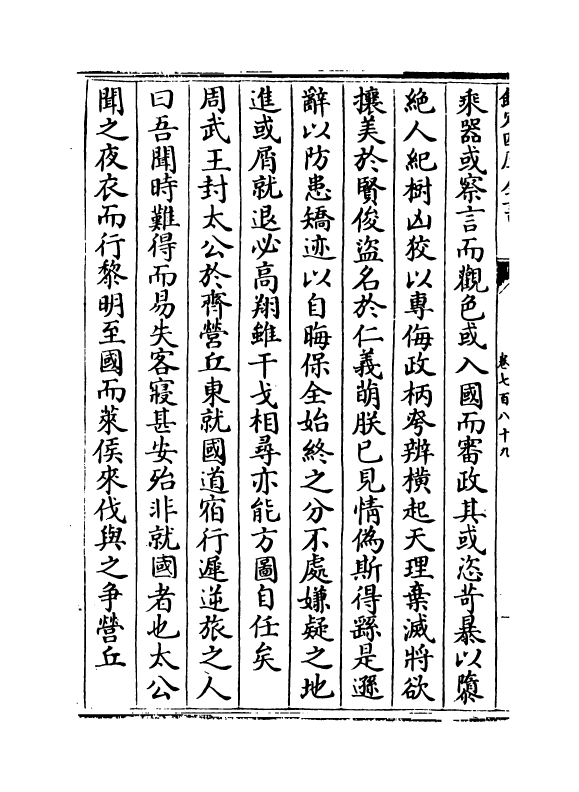 乘器或察言而觀色或入國而審政其或恣苛暴以隳
絕人紀樹凶狡以專侮政柄旁辨橫起天理棄滅將欲
攘美於賢俊盜名於仁義萌朕已見情偽斯得繇是遜
辭以防患矯迹以自晦保全始終之分不處嫌疑之地
進或屑就退必高翔雖干戈相尋亦能方圖自任矣
周武王封太公於齊營丘東就國道宿行遲逆旅之人
曰吾聞時難得而易失客寢甚安殆非就國者也太公
聞之夜衣而行黎明至國而萊侯來伐與之争營丘
卷七百八十九